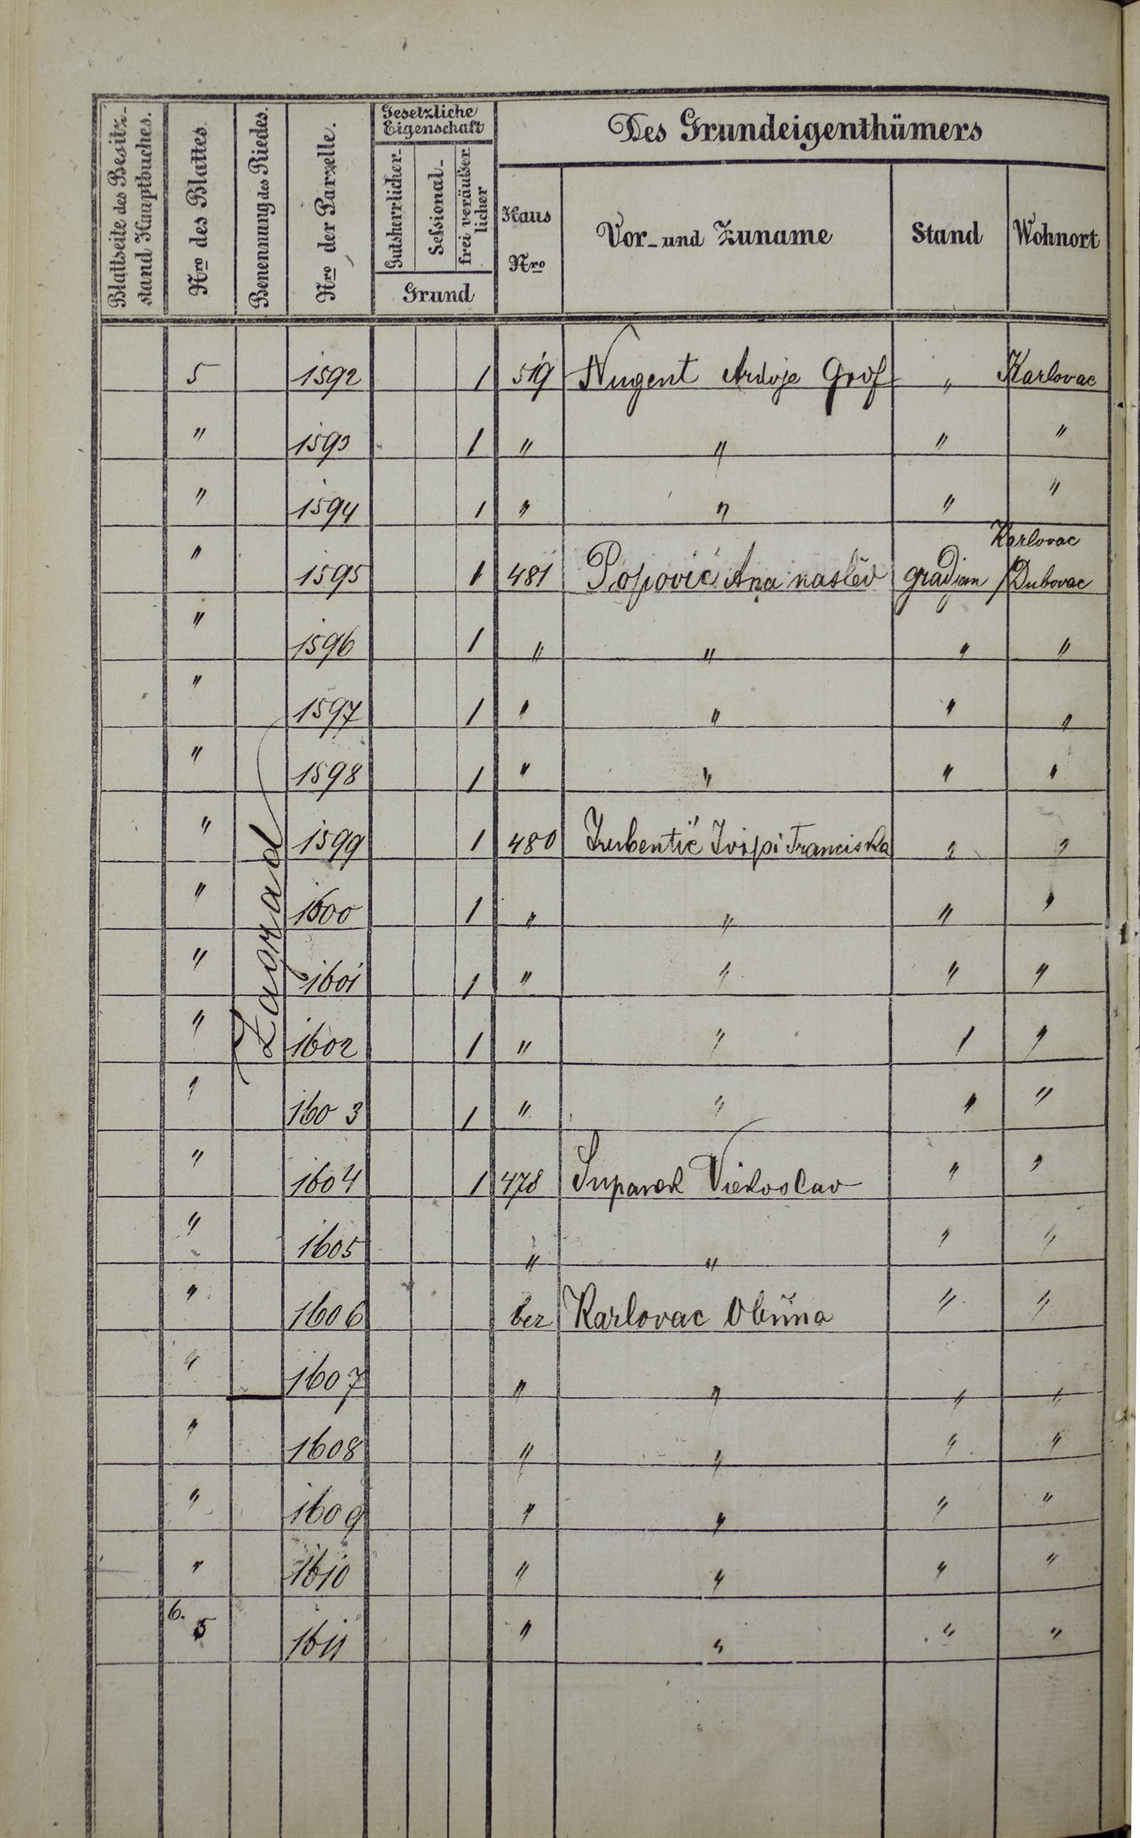 Blattseite des Besitz-
stand Hauptbuches.
Nro des Blattes.
Benennung des Riedes.
Nro der Parzelle.
Gesetzliche
Eigenschaft
Gutsherrlicher-
Sessional-
frei veräußer
licher
Grund
Des Grundeigenthümers
Haus
Nro
Vor- und Zuname
Stand
Wohnort
Zagrad
5 1592 1 519 Nugent Grof " Karlovac
" 1593 1 " " " "
" 1594 1 " " " "
Karlovac
" 1595 1 481 Popović Ana naslěd gradjan / Dubovac
" 1596 1 " " " "
" 1597 1 " " " "
" 1598 1 " " " "
" 1599 1 480 Franciska " "
" 1600 1 " " " "
" 1601 1 " " " "
" 1602 1 " " " "
" 1603 1 " " " "
" 1604 1 478 Viekoslav " "
" 1605 " " " "
" 1606 bez Karlovac Obćina " "
" 1607 " " " "
" 1608 " " " "
" 1609 " " " "
" 1610 " " " "
6. 5 1611 " " " "